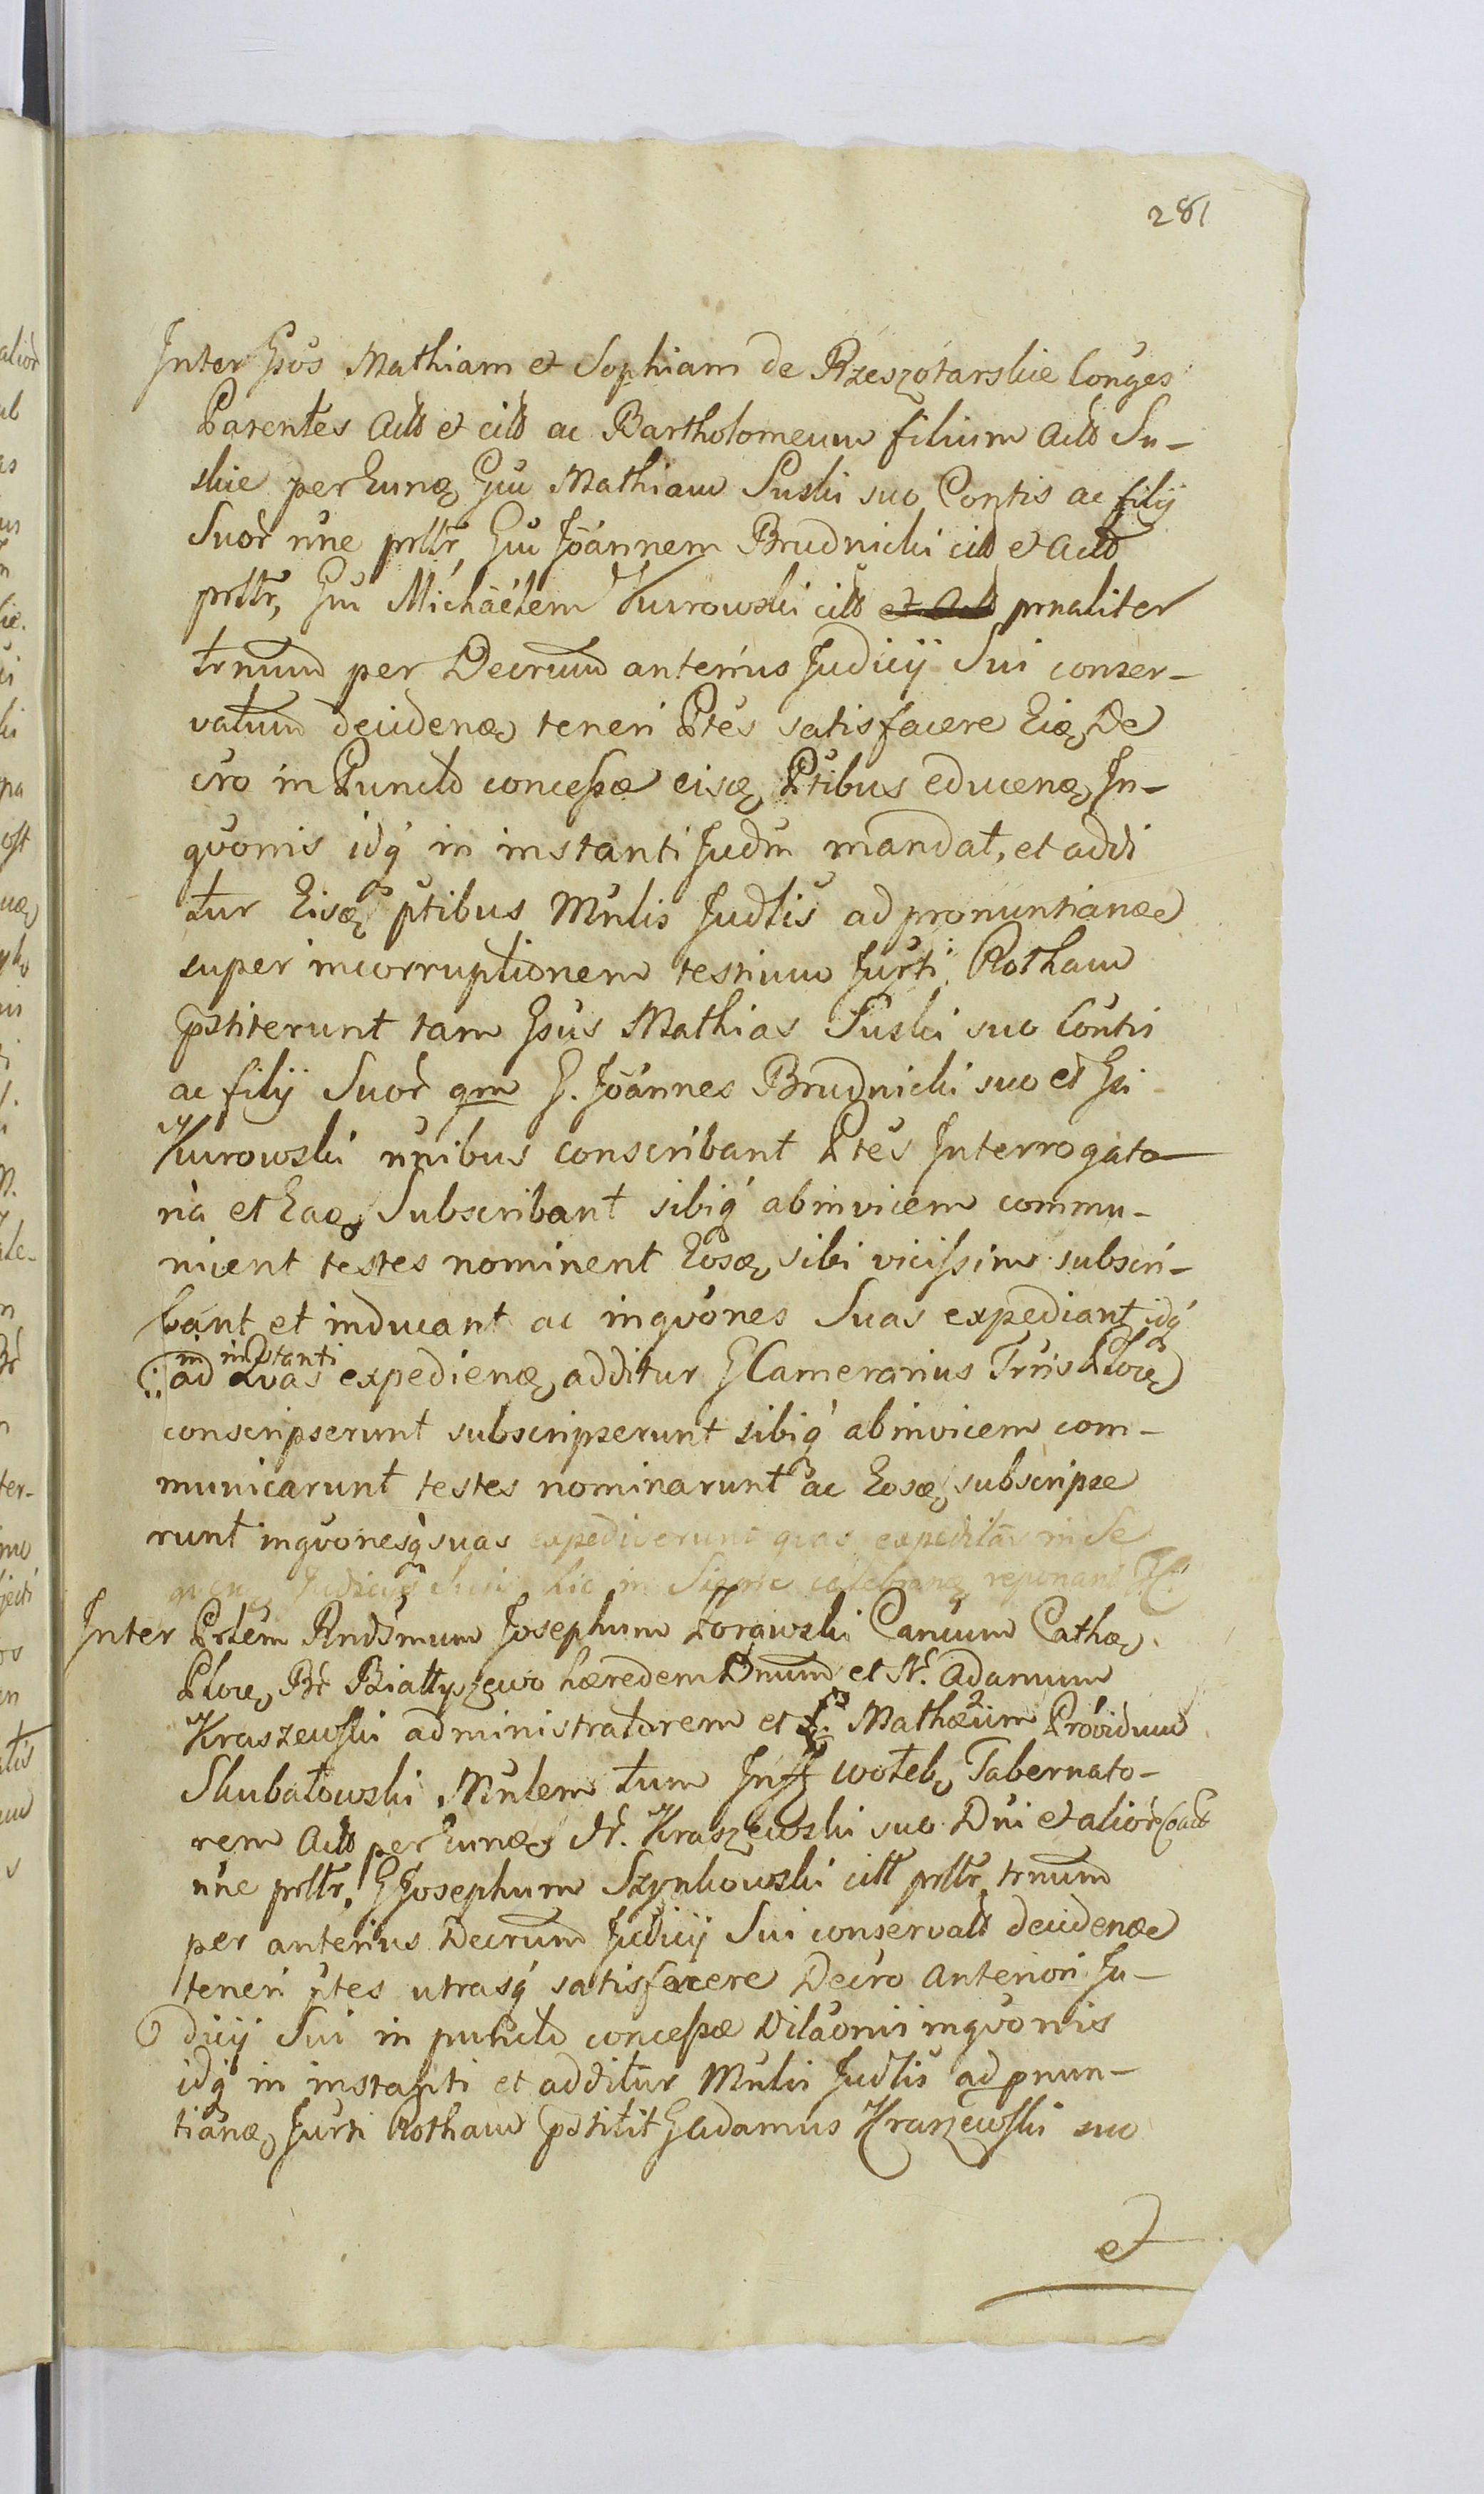 281
Inter Gsos Mathiam et Sophiam de Rzeszotarskie Conges
Parentes Actt et citt ac Bartholomeum filium Actt Su-
skie per Eund Gm Mathiam Suski suo Contis ac filij
Suor nne prttr, Gm Joannem Brudnicki citt et Actt
prttr, Gm Michaelem Kurowski citt prnaliter
trnum per Decrum anterius Judicij Sui conser-
vatum decidend teneri Ptes satisfacere Eid De
cro in Puncto concessæ eisd Ptibus educend In-
qvonis idq in instanti Judm mandat, et addi
tur Eisd ptibus Mnlis Judlis ad pronuntiand
super incorruptionem testium Jurti, Rotham
pstiterunt tam Gsus Mathias Suski suo Contis
ac filij Suor qm G. Joannes Brudnicki suo et Gsi
Kurowski nnibus conscribant Ptes Interrogato
ria et Ead Subscribant sibiq abinvicem commu-
nicent testes nominent Eosd sibi vicissim subscri-
bant et inducant ac inqvones Suas expediant idq
in instanti
ad Qvas expediend additur G Camerarius Trris Ploc
conscripserunt subscripserunt sibiq abinvicem com-
municarunt testes nominarunt ac Eosd subscripse
runt inqvonesq suas expediverunt quas expeditas in Se
Judicijs Sui hic in celebrand reponant
Inter Prlem Rndsmum Josephum Zorawski Cancum Cath
Ploc, Br Biattyszewo hæredem Dnum et N. Adamum
Kraszewski administratorem et Mathæum Providum
Skubatowski Mnlem tum Inff Tabernato-
rem Actt per Eund N. Kraszewski suo Dni et alior Coactt
nne prttr, G Josephum Szynkowski citt prttr, trnum
per anterius Decrum Judicij Sui conservatt decidend
teneri ptes utrasq satisfacere Decro Anteriori Ju-
dicij Sui in puncto concessæ Dilaonis inqvonis
idq in instanti et additur Mnlis Judlis ad pnun-
tiand Jurti Rotham pstitit G Adamus Kraszewski suo
et